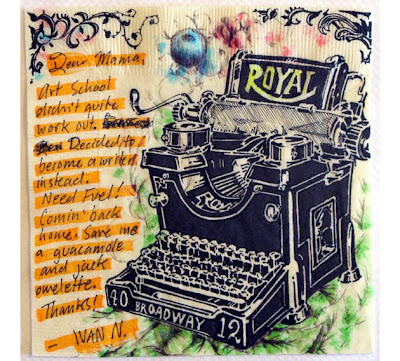 Dear Mama,
Art School
didn't quite
work out.
Decided to
become a writer
instead.
Need Fuel!
Comin' back
home. Save me
a guacamole
and jack
omelette.
Thanks!
— IVAN N.
ROYAL
Royal
10 BROADWAY 12